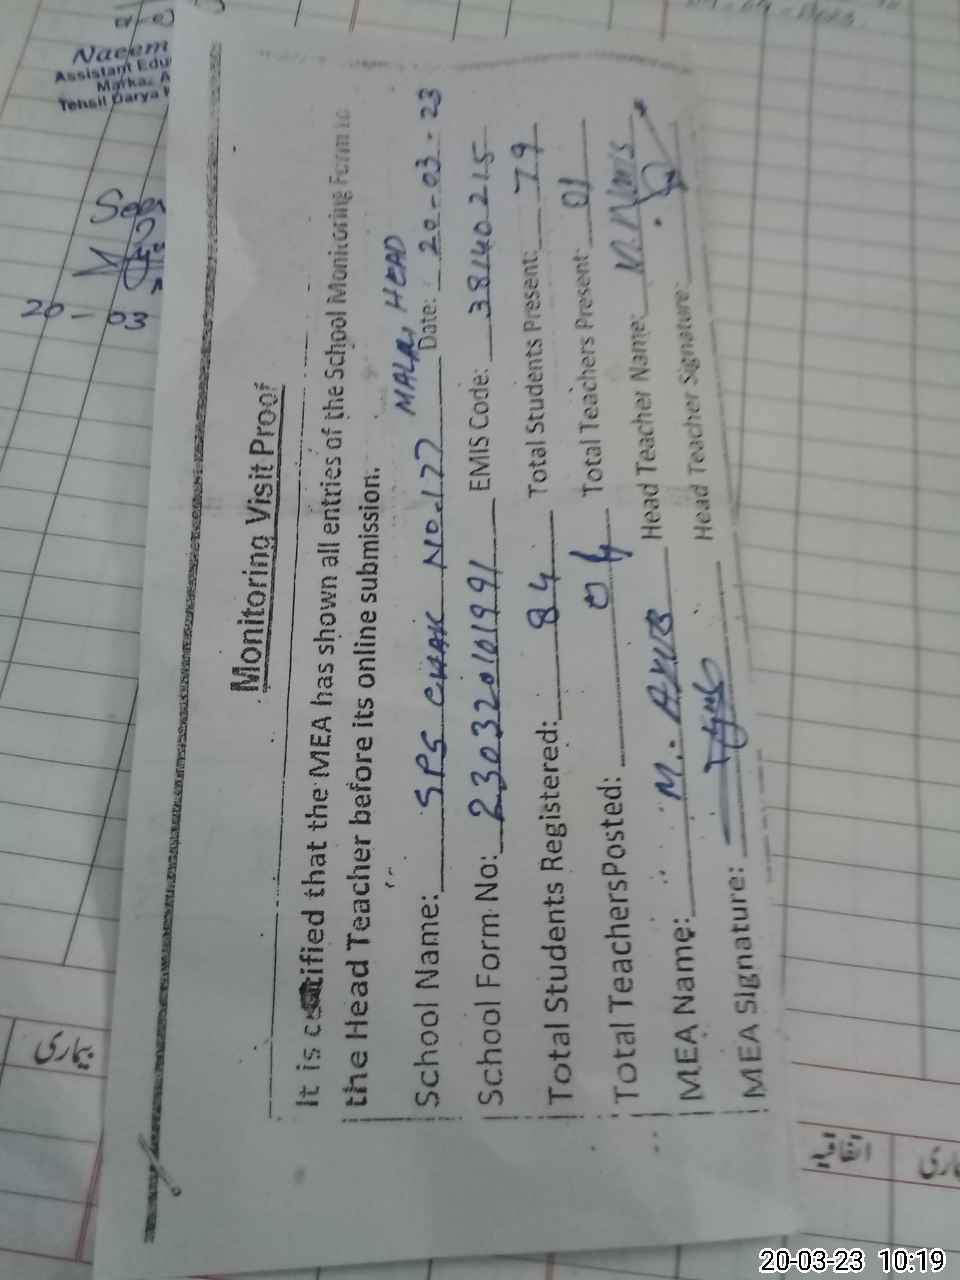 Naeem
Assistant Edu
Marka
Tehsil Darya
20 - 03
Monitoring Visit Proof
It is certified that the MEA has shown all entries of the School Monitoring Form to
the Head Teacher before its online submission.
School Name: SPS CHAK NO.177 MALRI HEAD Date: 20-03-23
School Form No: 230320101991 EMIS Code: 38140215
Total Students Registered: 84 Total Students Present: 79
Total TeachersPosted: 04 Total Teachers Present: 01
MEA Name: M. AYUB Head Teacher Name:
MEA Signature: Head Teacher Signature:
بیماری
اتفاقیہ
20-03-23 10:19